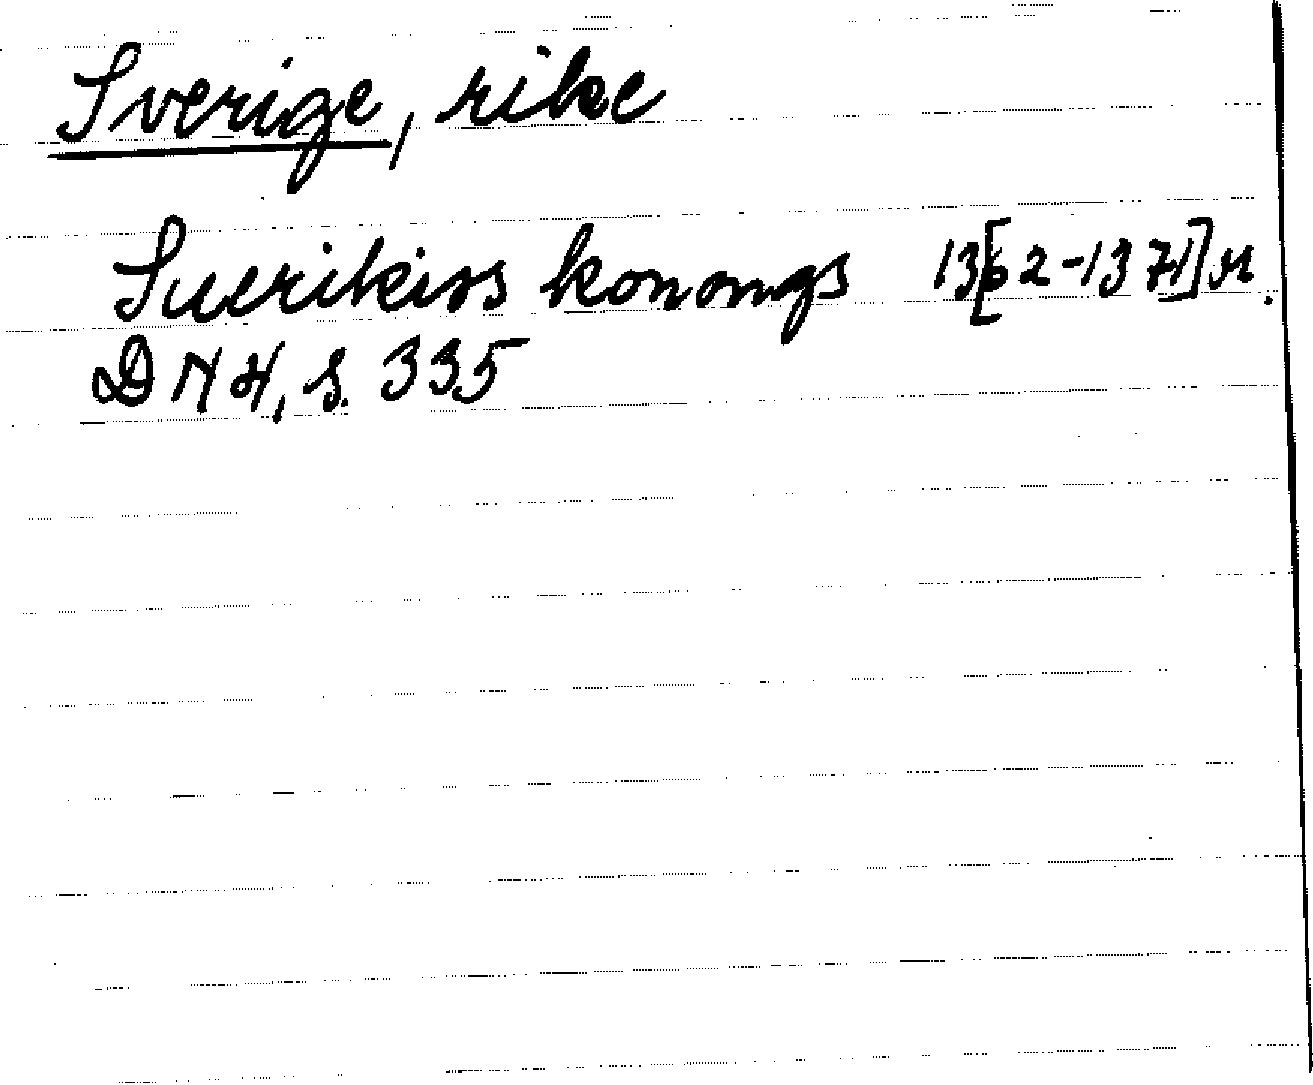 Sverige, rike
Suerikiss konongs 13[62-1371] or.
DN 4, s. 335